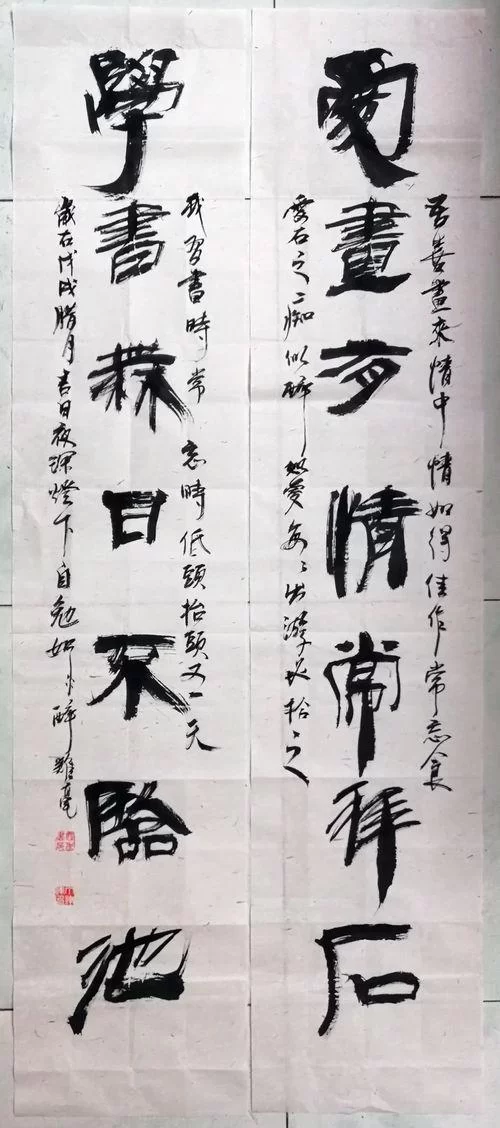 吾喜畫來情中情如得佳作常忘食
愛畫有情常拜石
愛石之痴似醉如愛每每出游必拾之
我習書時常忘時低頭抬頭又一天
學書無日不臨池
歲在戊戌腊月吉日夜深燈下自勉如